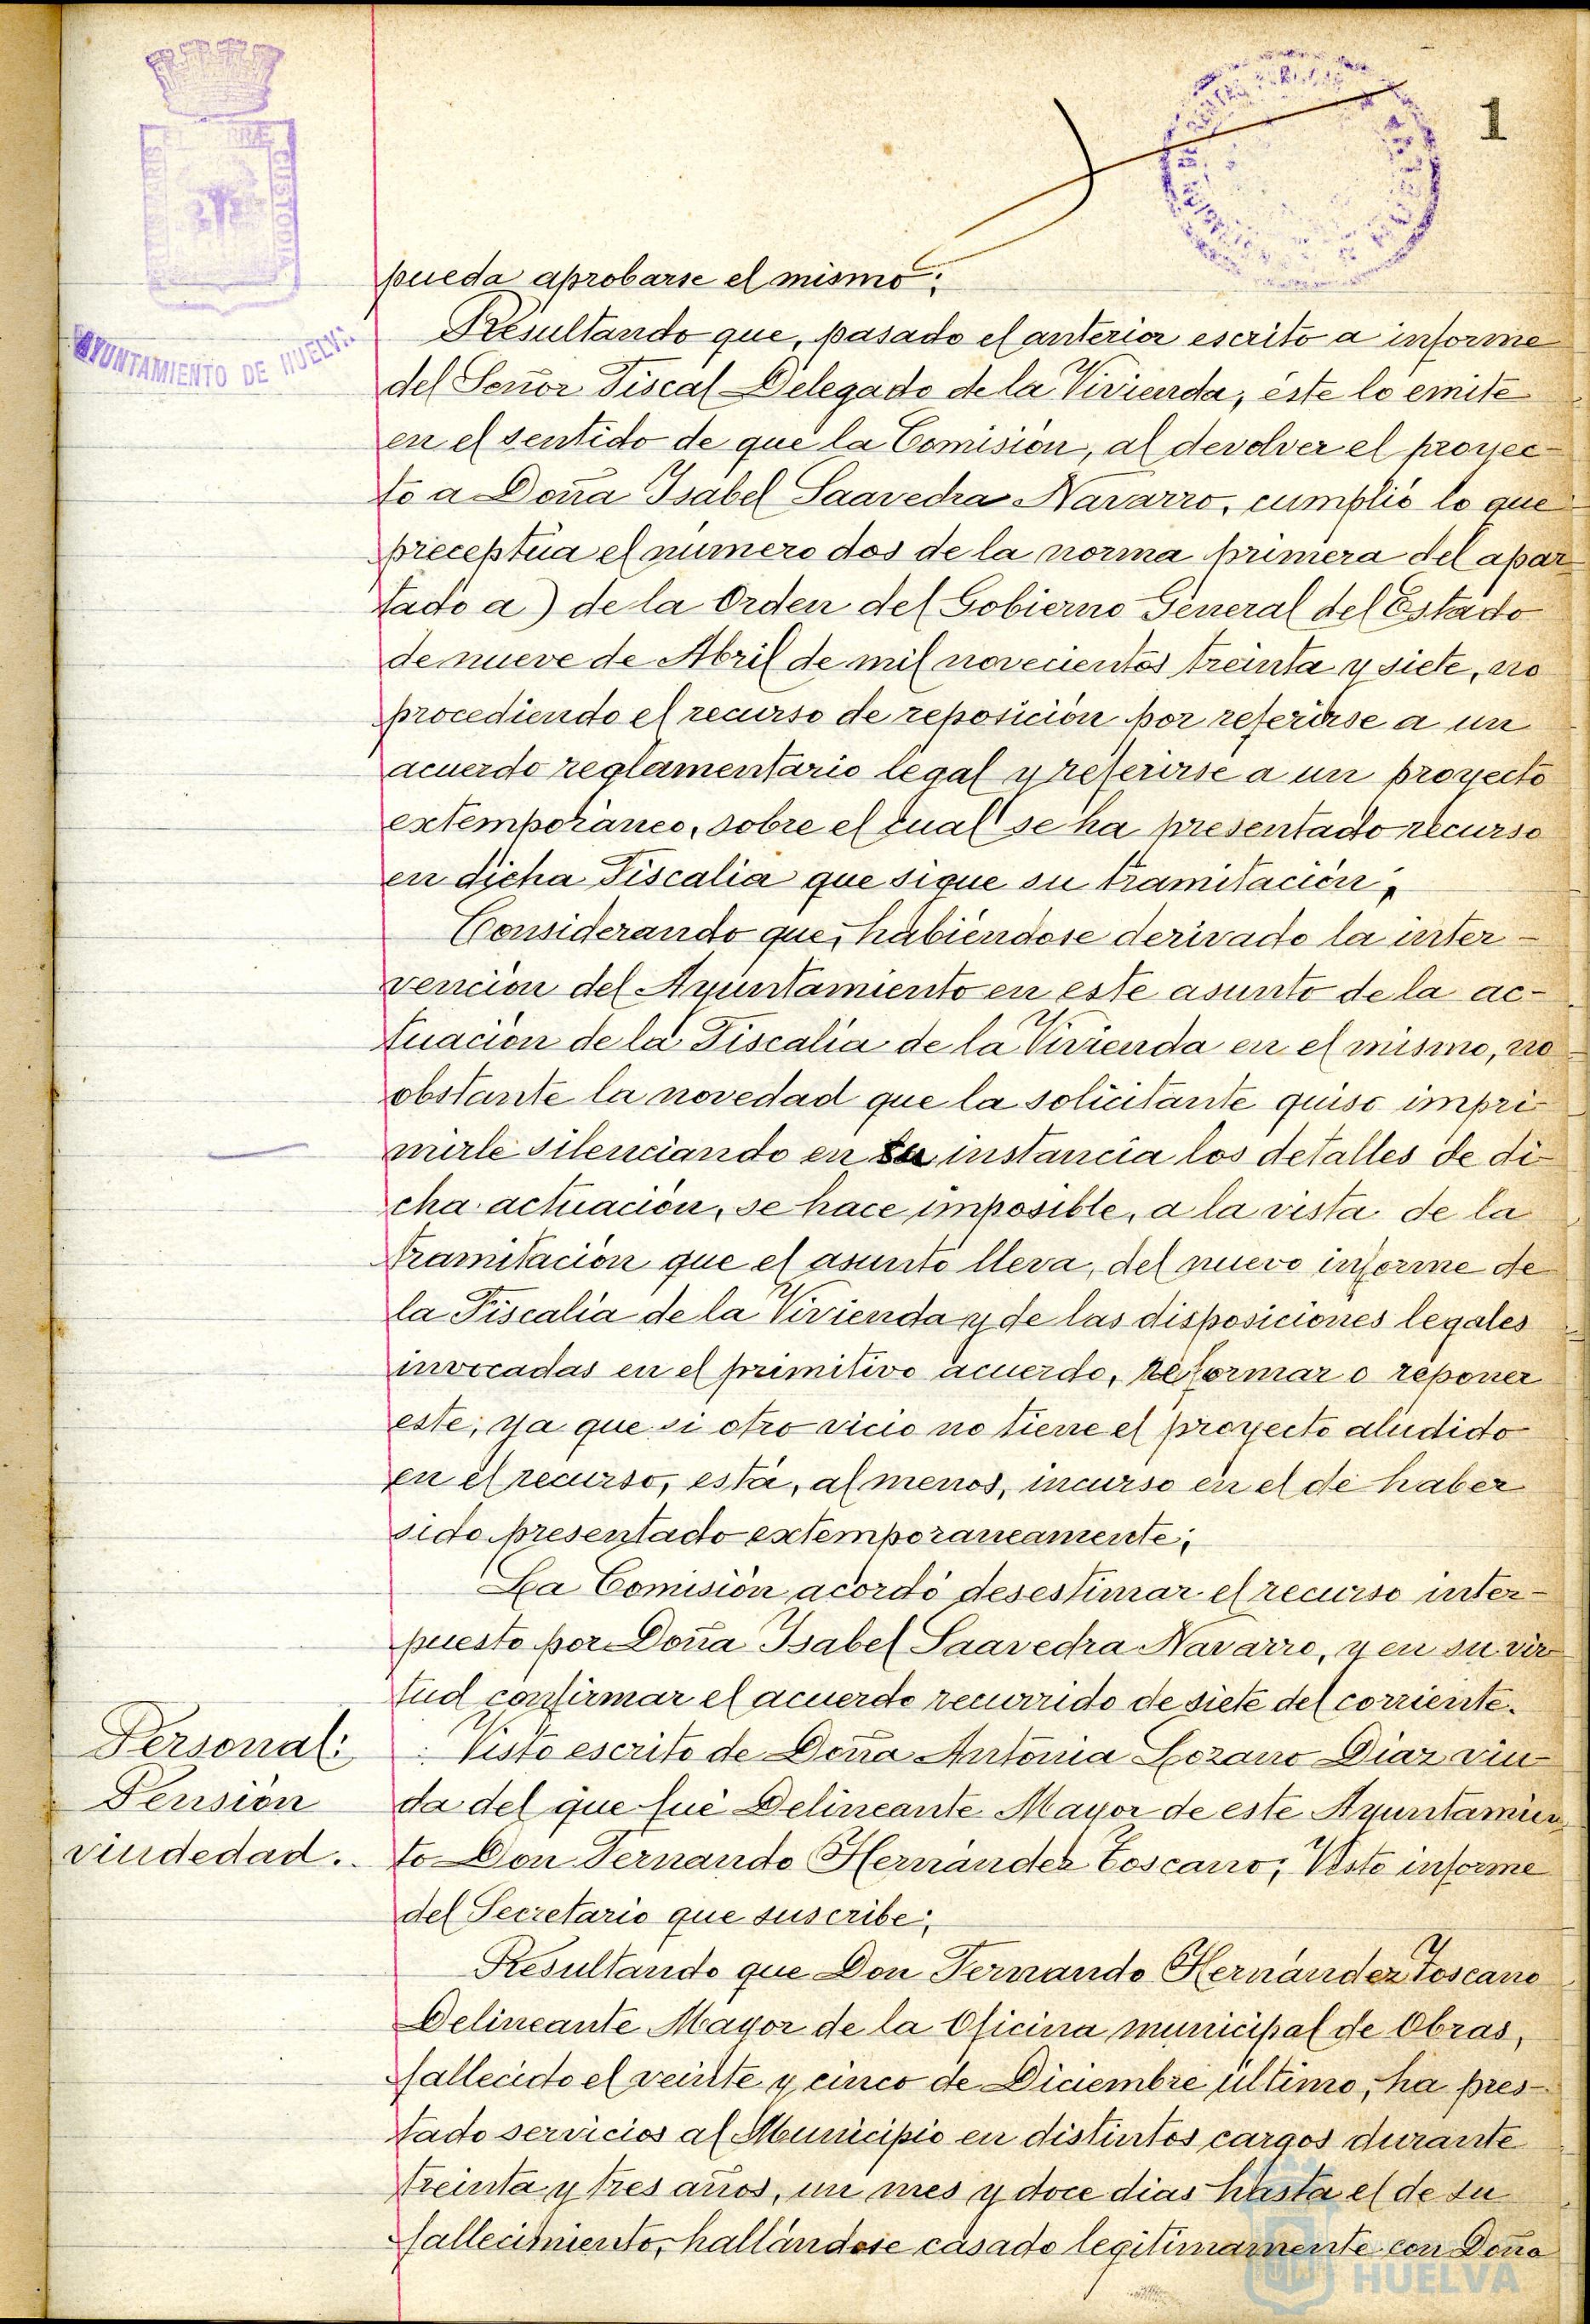 1
AYUNTAMIENTO DE HUELVA
pueda aprobarse el mismo;
Resultando que, pasado el anterior escrito a informe
del Señor Fiscal Delegado de la Vivienda, éste lo emite
en el sentido de que la Comisión, al devolver el proyec-
to a Doña Isabel Saavedra Navarro, cumplió lo que
preceptúa el número dos de la norma primera del apar-
tado a) de la Orden del Gobierno General del Estado
de nueve de Abril de mil novecientos treinta y siete, no
procediendo el recurso de reposición por referirse a un
acuerdo reglamentario legal y referirse a un proyecto
extemporáneo, sobre el cual se ha presentado recurso
en dicha Fiscalia que sigue su tramitación;
Considerando que, habiéndose derivado la inter-
vención del Ayuntamiento en este asunto de la ac-
tuación de la Fiscalía de la Vivienda en el mismo, no
obstante la novedad que la solicitante quiso impri-
mirle silenciando en su instancia los detalles de di-
cha actuación, se hace imposible, a la vista de la
tramitación que el asunto lleva, del nuevo informe de
la Fiscalía de la Vivienda y de las disposiciones legales
invocadas en el primitivo acuerdo, reformar o reponer
este; ya que si otro vicio no tiene el proyecto aludido
en el recurso, está, al menos, incurso en el de haber
sido presentado extemporaneamente;
La Comisión acordó desestimar el recurso inter-
puesto por Doña Isabel Saavedra Navarro, y en su vir-
tud confirmar el acuerdo recurrido de siete del corriente.
Personal:
Pensión
viudedad.
Visto escrito de Doña Antonia Lozano Diaz viu-
da del que fué Delineante Mayor de este Ayuntamien-
to Don Fernando Hernández Toscano; Visto informe
del Secretario que suscribe;
Resultando que Don Fernando Hernández Toscano
Delineante Mayor de la Oficina municipal de Obras,
fallecido el veinte y cinco de Diciembre último, ha pres-
tado servicios al Municipio en distintos cargos durante
treinta y tres años, un mes y doce dias hasta el de su
fallecimiento, hallándose casado legitimamente con Doña
HUELVA